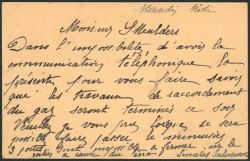 Mercredi Midi
Monsieur Smulders
Dans l'impossibilité d'avoir la
communication téléphonique la
présente pour vous faire savoir
que les travaux de raccordement
du gaz seront terminés ce soir
Veuillez je vous prie
faire passer le
3 petits sont à fermer
à cause du